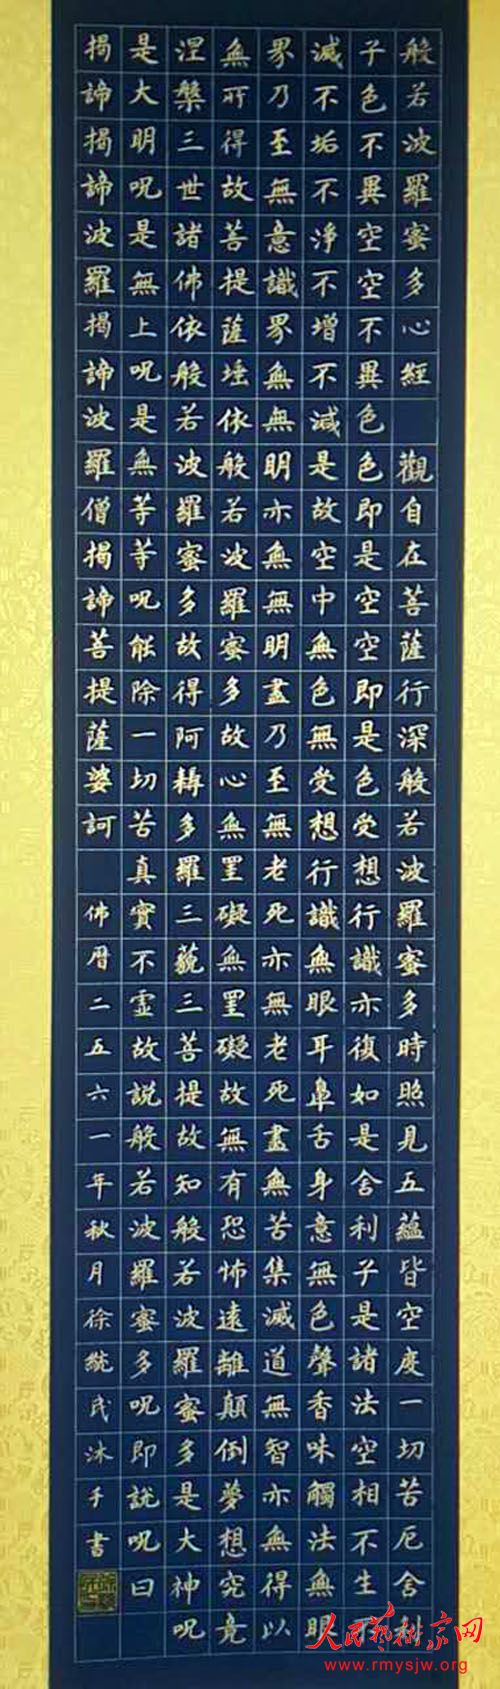 般若波羅蜜多心經 觀自在菩薩行深般若波羅蜜多時照見五蘊皆空度一切苦厄舍利
子色不異空空不異色色即是空空即是色受想行識亦復如是舍利子是諸法空相不生不
滅不垢不淨不增不減是故空中無色無受想行識無眼耳鼻舌身意無色聲香味觸法無眼
界乃至無意識界無無明亦無無明盡乃至無老死亦無老死盡無苦集滅道無智亦無得以
無所得故菩提薩埵依般若波羅蜜多故心無罣礙無罣礙故無有恐怖遠離顛倒夢想究竟
涅槃三世諸佛依般若波羅蜜多故得阿耨多羅三藐三菩提故知般若波羅蜜多是大神呪
是大明呪是無上呪是無等等呪能除一切苦真實不虛故說般若波羅蜜多呪即說呪曰
揭諦揭諦波羅揭諦波羅僧揭諦菩提薩婆訶 佛暦二五六一年秋月徐統民沐手書
人民藝術家网
www.rmysjw.org